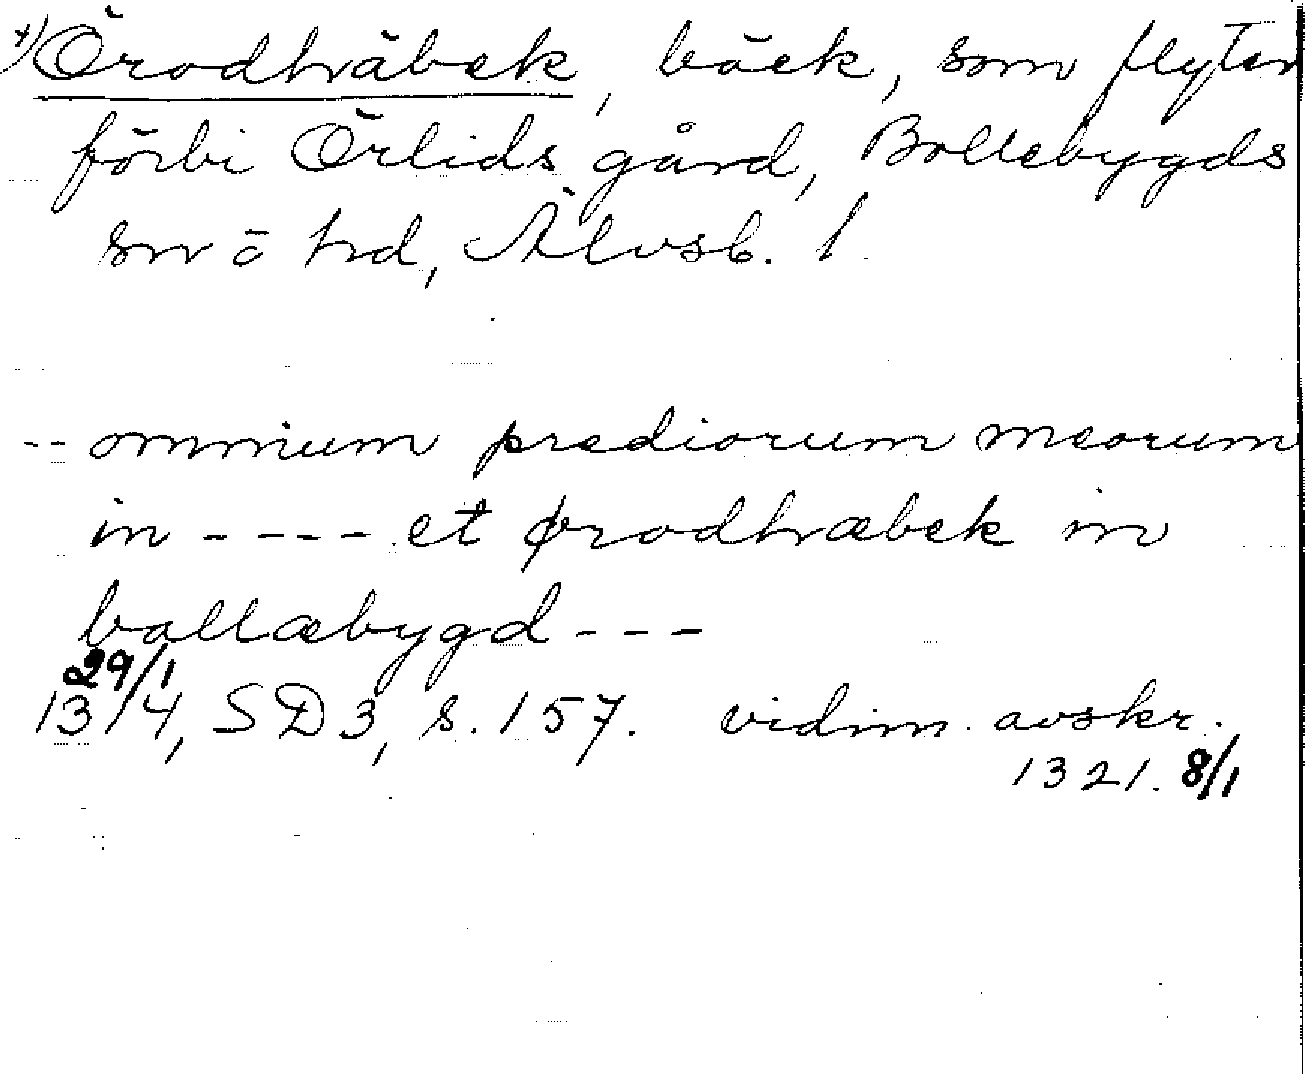 x) Örodhräbek, bäck, som flyter
förbi Örlids gård, Bollebygds
sn o hd, Älvsb. l.
-- omnium prediorum meorum
in ---- et ørodhræbek in
bollæbygd ---
29/1
1314, SD 3, s. 157. vidim. avskr.
1321. 8/1